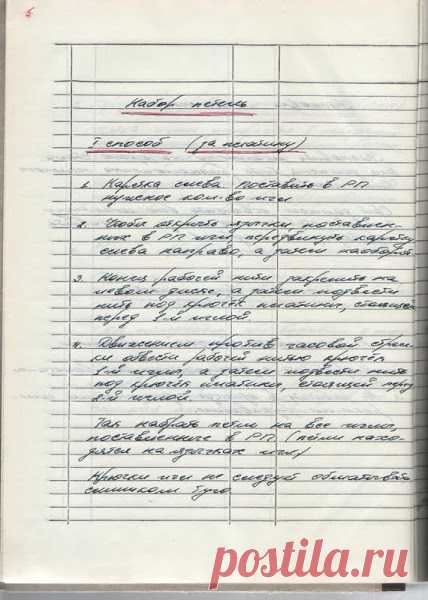 6
Набор петель
I способ (за платину)
1. Каретка слева. Поставить в РП
нужное кол-во игл
2. Чтобы открыть язычки поставлен-
ных в РП игл передвинуть каретку
слева направо, а затем наоборот.
3. Конец рабочей нити закрепить на
левом диске, а затем подвести
нить под крючёк платины, стоящей
перед 1-й иглой
4. Движением против часовой стрел-
ки обвести рабочей нитью крючёк
1-й иглы, а затем подвести нить
под крючёк платины, стоящей перед
2-й иглой.
Так набрать петли на все иглы,
поставленные в РП (петли нахо-
дятся на язычках игл)
Крючки игл не следует обматывать
слишком туго.
postila.ru